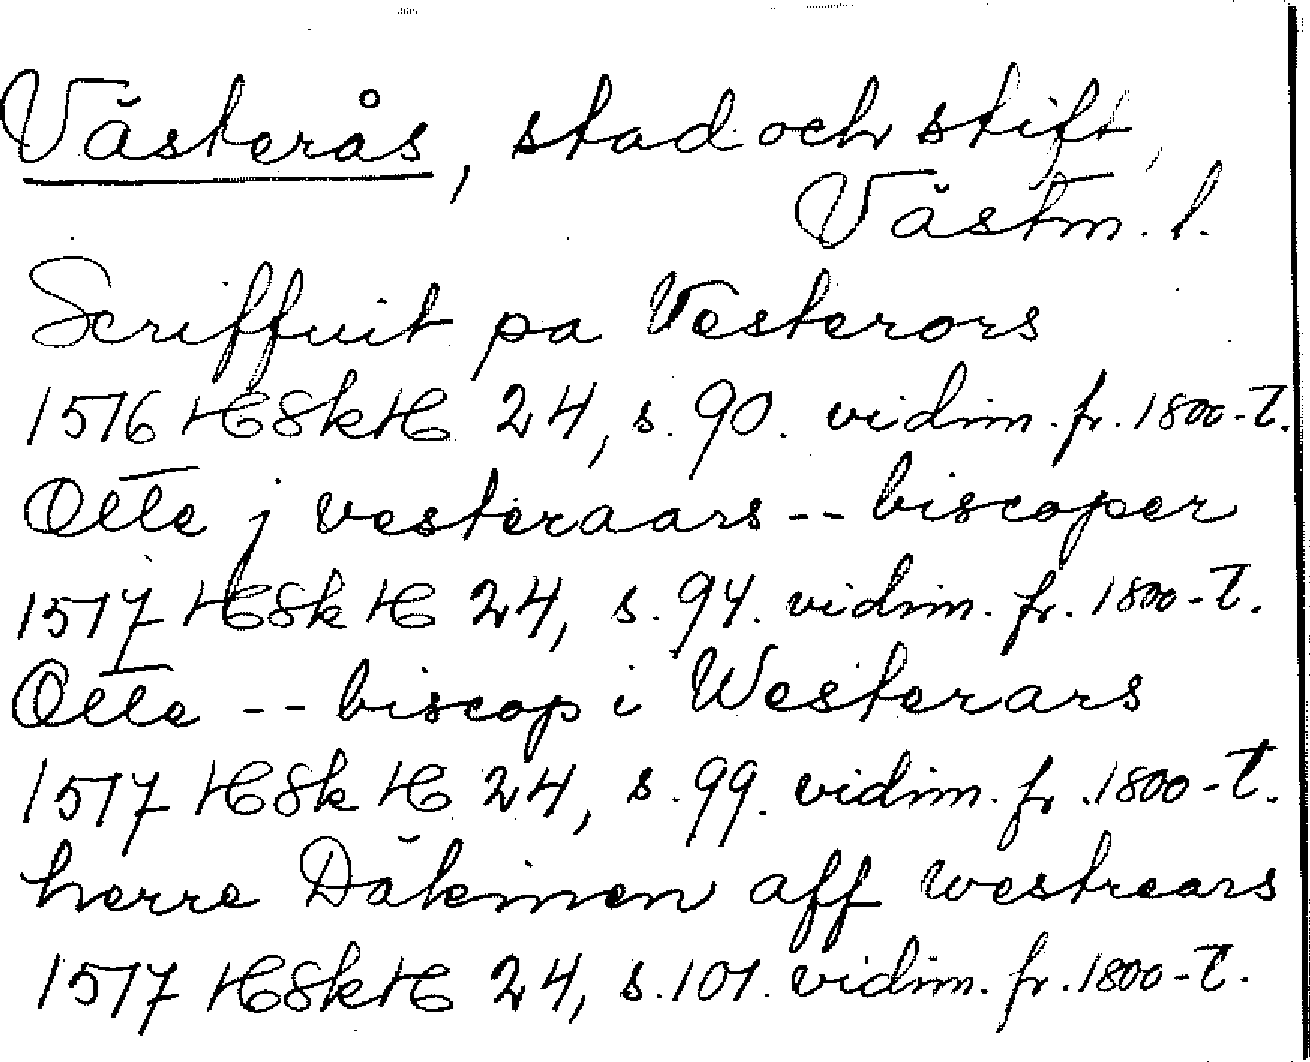 Västerås, stad och stift,
Västm. l.
Scriffuit pa Vesterors
1516 HSkH 24, s. 90. vidim. fr. 1800-t.
Otte j vesteraars -- biscoper
1517 HSkH 24, s. 94. vidim. fr. 1800-t.
Otte -- biscop i Westerars
1517 HSkH 24, s. 99. vidim. fr. 1800-t.
herre Däkinen aff westrears
1517 HSkH 24, s. 101. vidim. fr. 1800-t.